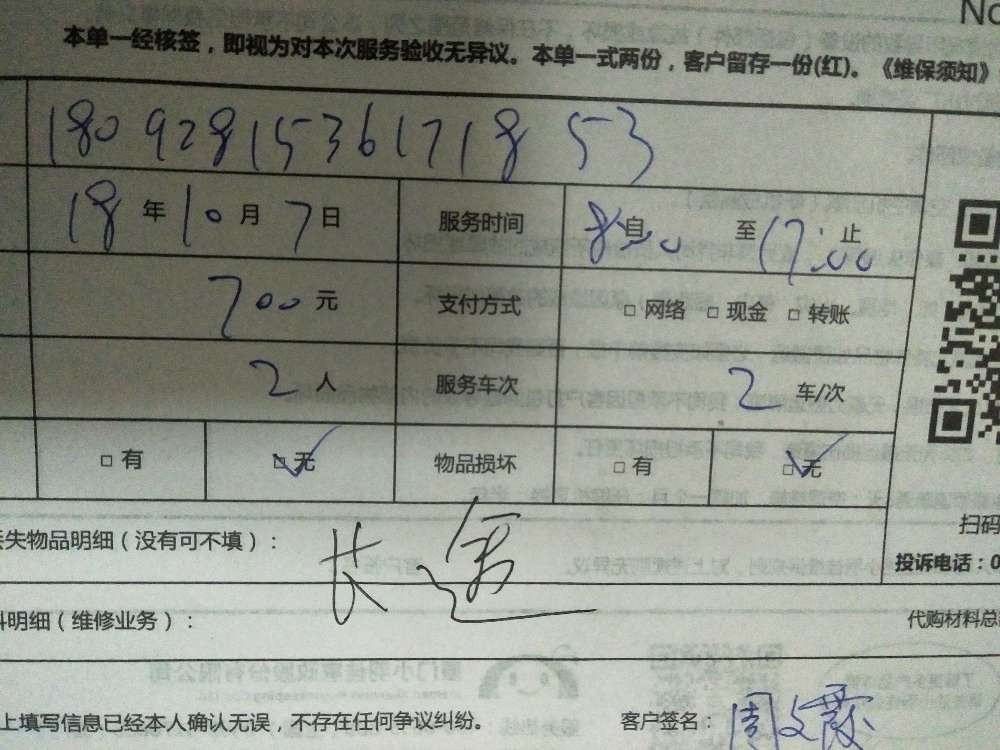 No
本单一经核签，即视为对本次服务验收无异议。本单一式两份，客户留存一份(红)。《维保须知》
18092815361718 53
18 年 10 月 7 日 服务时间 自 至 17:00 止
700 元 支付方式 □ 网络 □ 现金 □ 转账
2 人 服务车次 2 车/次
□ 有 □ 无 物品损坏 □ 有 □ 无
失物品明细（没有可不填）：
扫码
投诉电话：0
料明细（维修业务）： 代购材料总
上填写信息已经本人确认无误，不存在任何争议纠纷。 客户签名：周文霞